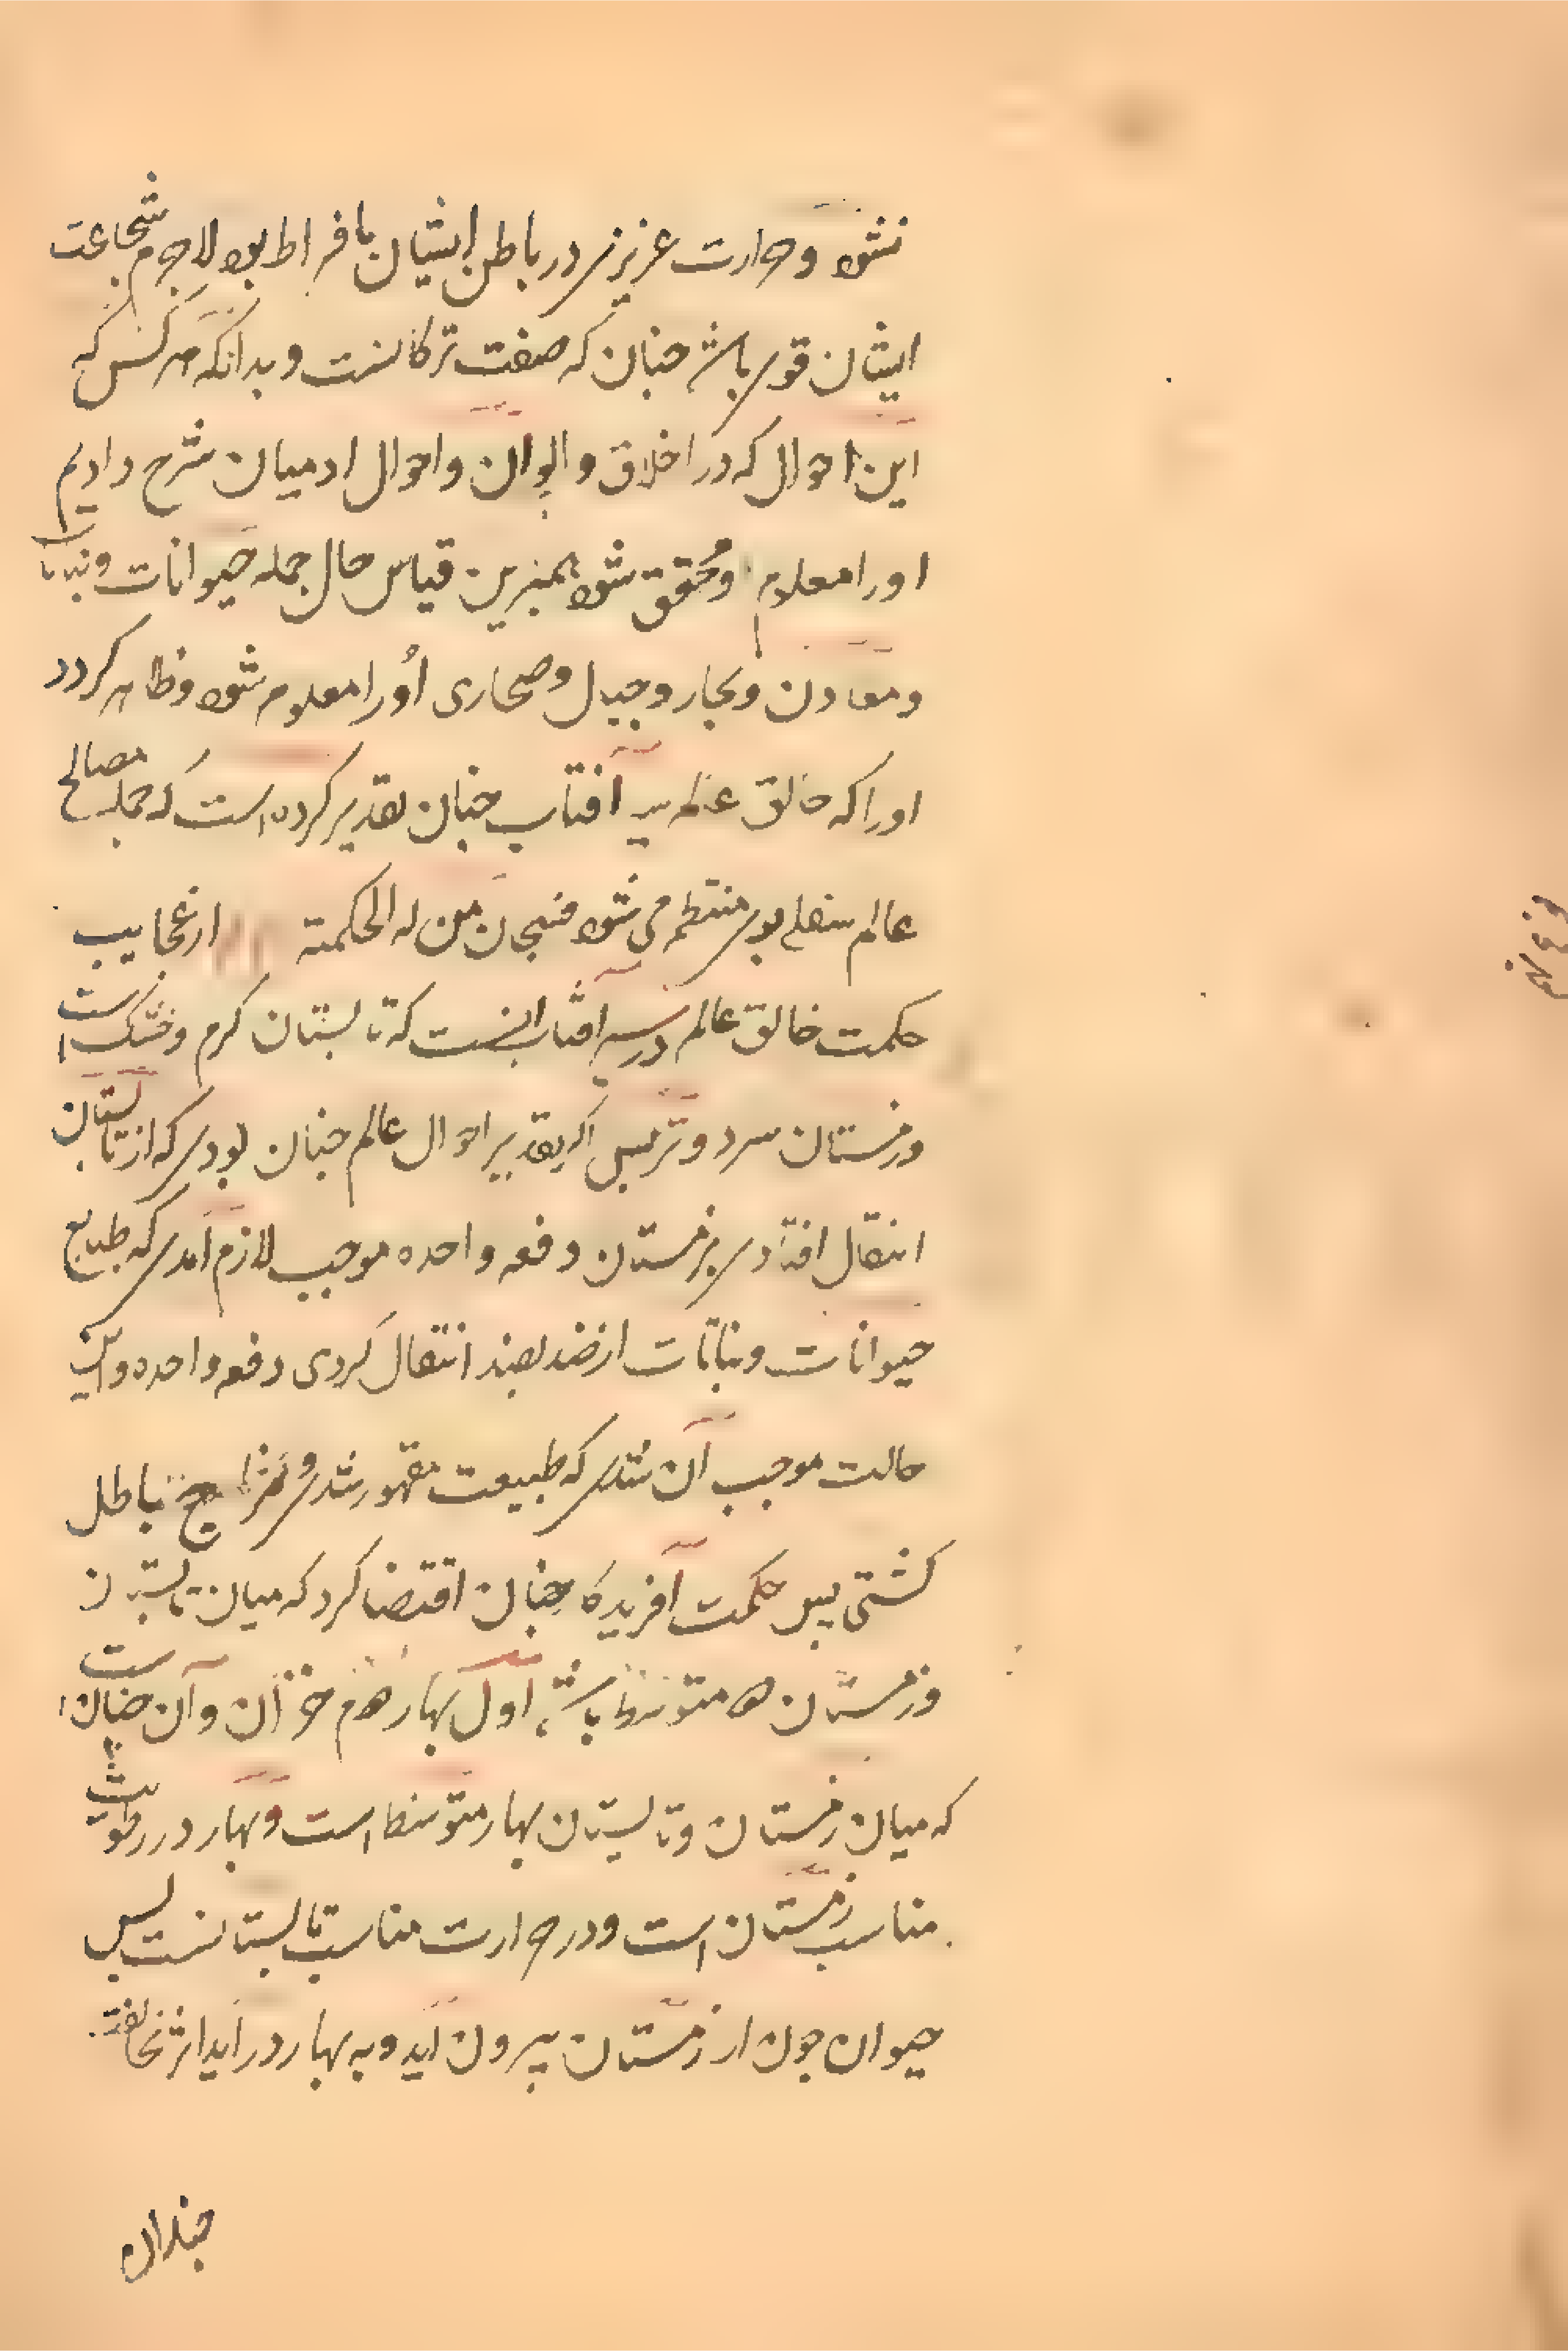 نشود و حرارت عزیزی در باطن ایشان بافراط بود لاجرم شجاعت
ایشان قوی باشد چنان که صفت ترکانست و بدانکه هر کس که
این احوال که در اخلاق و الوان و احوال ادمیان شرح دادیم
اورا معلوم و محقق شود همبرین قیاس حال جمله حیوانات و نباتات
و معادن و بحار و جبال و صحاری اورا معلوم شود و ظاهر کردد
اورا که خالق عالم سیر آفتاب چنان تقدیر کرده است که جمله مصالح
عالم سفلی بوی منتظم می شود فسبحان من له الحکمة از عجایب
حکمت خالق عالم در سیر آفتاب انست که تابستان کرم و خشک است
و زمستان سرد و تر پس اکر بتقدیر احوال عالم چنان بودی که از تابستان
انتقال افتادی بزمستان دفعه واحده موجب لازم آمدی که طبایع
حیوانات و نباتات از ضد بضد انتقال کردی دفعه واحده و این
حالت موجب آن شدی که طبیعت مقهور شدی و مزاج باطل
کشتی پس حکمت آفریدکار چنان اقتضا کرد که میان تابستان
و زمستان دو متوسط باشد اول بهار دوم خزان و آن چنان است
که میان زمستان و تابستان بهار متوسط است و بهار در رطوبت
مناسب زمستان است و در حرارت مناسب تابستانست پس
حیوان چون از زمستان بیرون آید و به بهار در آید اثر مخالفت
چندان